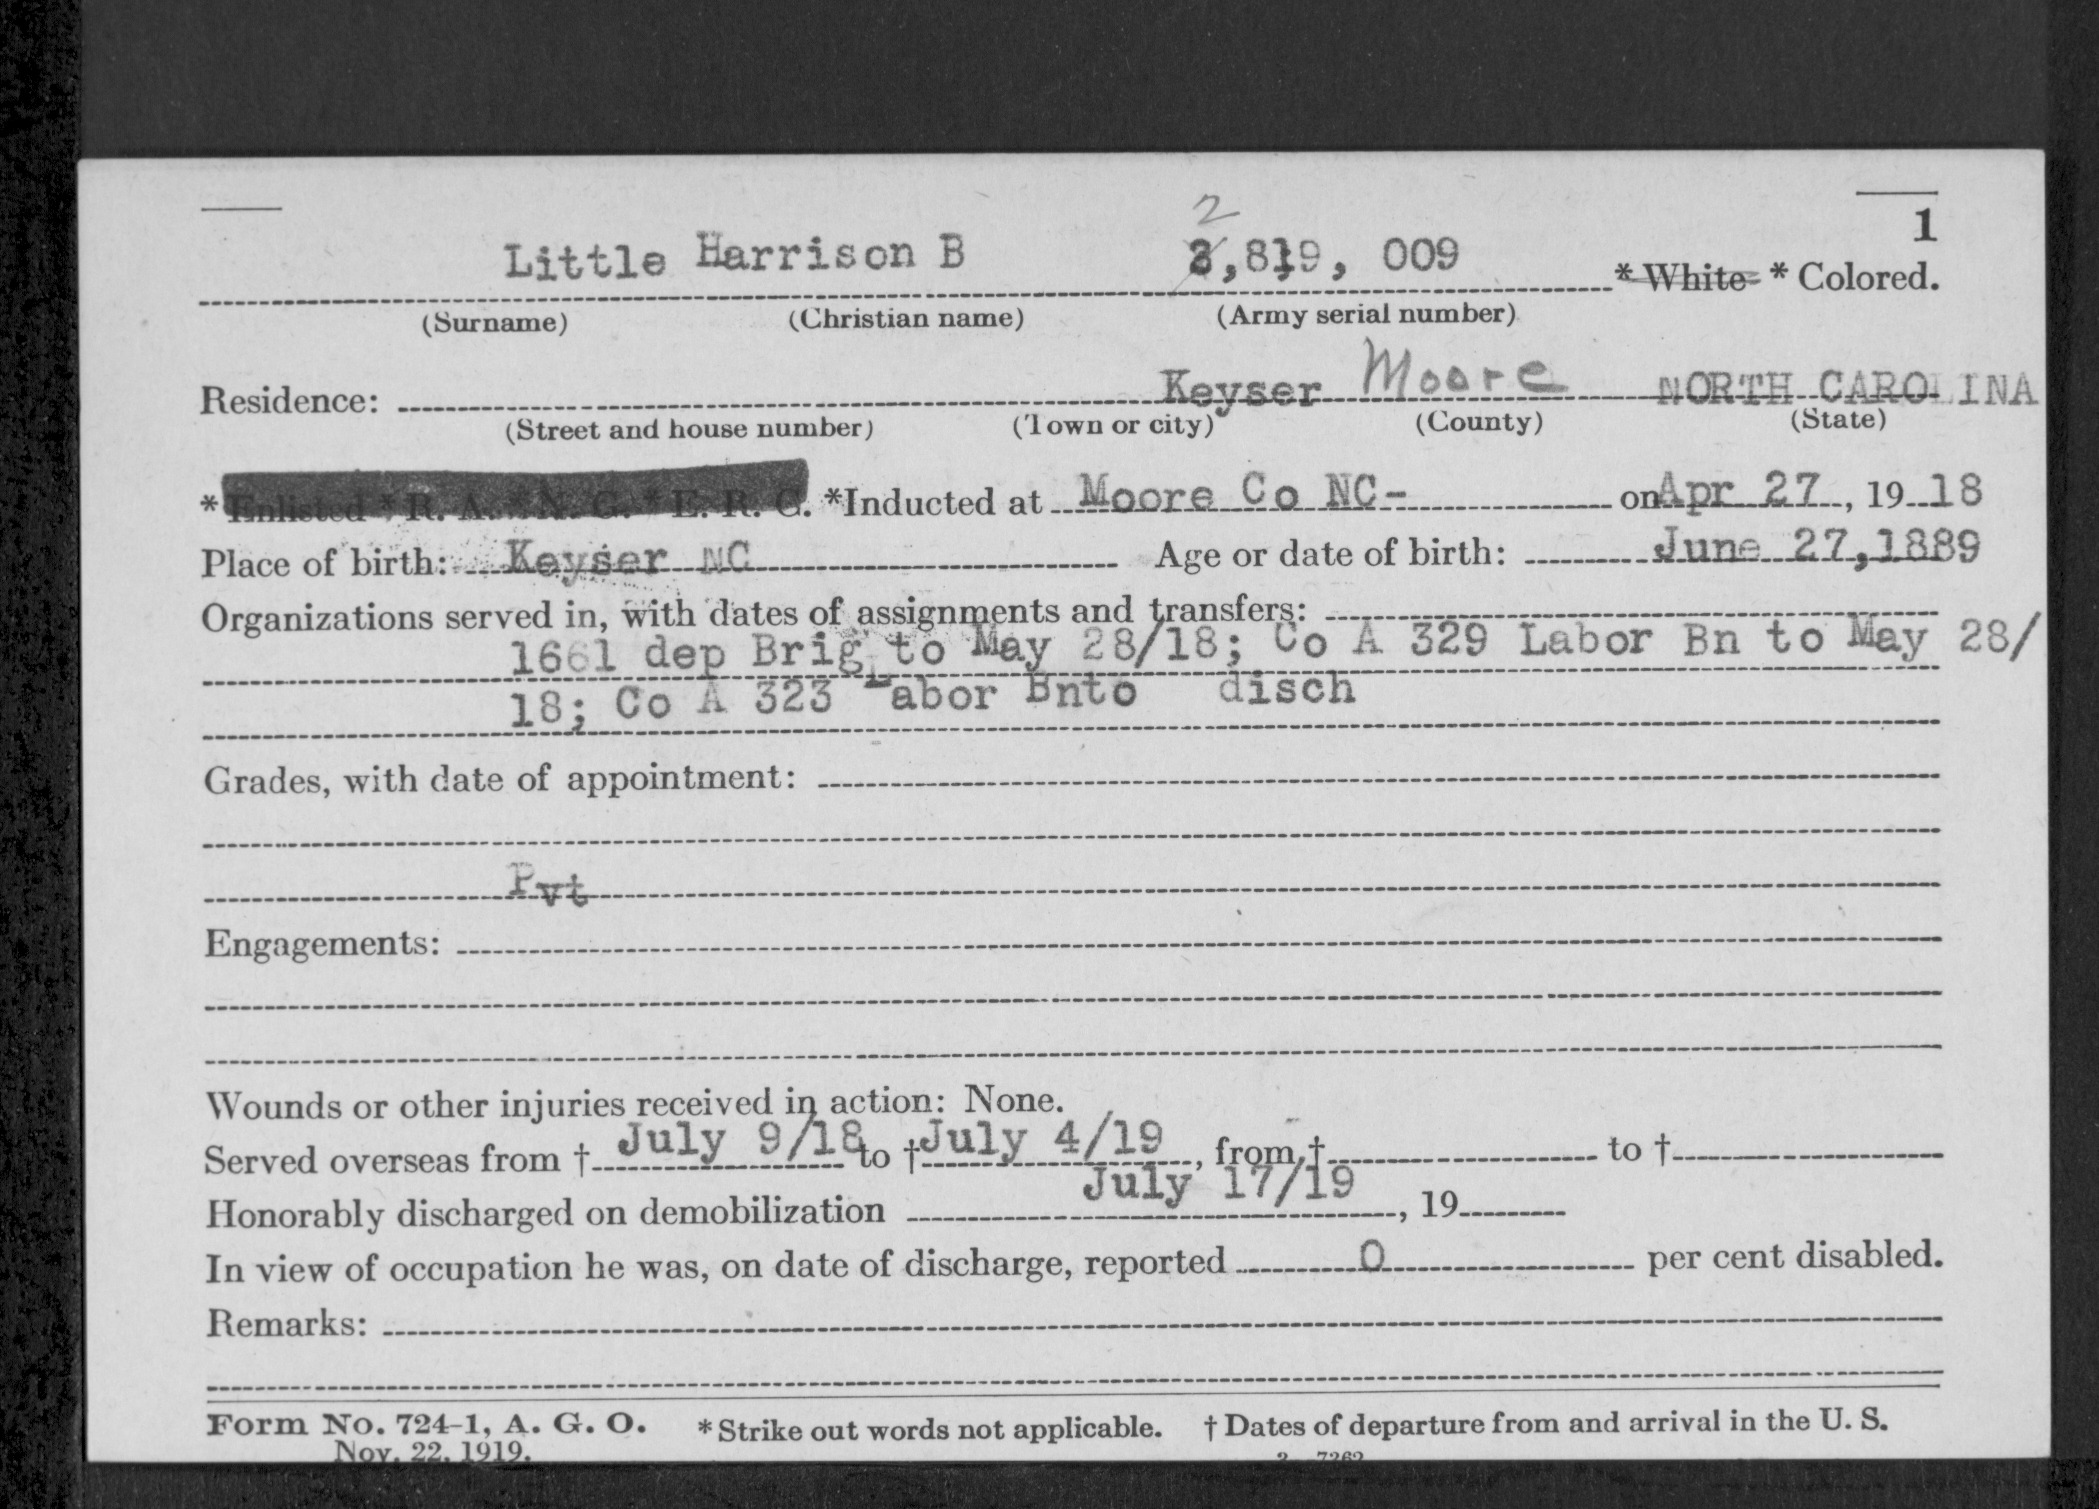 1
2
Little Harrison B 3,819, 009 * White * Colored.
(Surname) (Christian name) (Army serial number)
Residence: Keyser Moore NORTH CAROLINA
(Street and house number) (Town or city) (County) (State)
* Enlisted * R. A. * N. G. * E. R. C. *Inducted at Moore Co NC- on Apr 27, 19 18
Place of birth: Keyser NC Age or date of birth: June 27,1889
Organizations served in, with dates of assignments and transfers:
1661 dep Brig to May 28/18; Co A 329 Labor Bn to May 28/
18; Co A 323 Labor Bnto disch
Grades, with date of appointment:
Pvt
Engagements:
Wounds or other injuries received in action: None.
Served overseas from † July 9/18 to † July 4/19, from † to †
Honorably discharged on demobilization July 17/19, 19
In view of occupation he was, on date of discharge, reported 0 per cent disabled.
Remarks:
Form No. 724-1, A. G. O. * Strike out words not applicable. † Dates of departure from and arrival in the U. S.
Nov. 22, 1919.